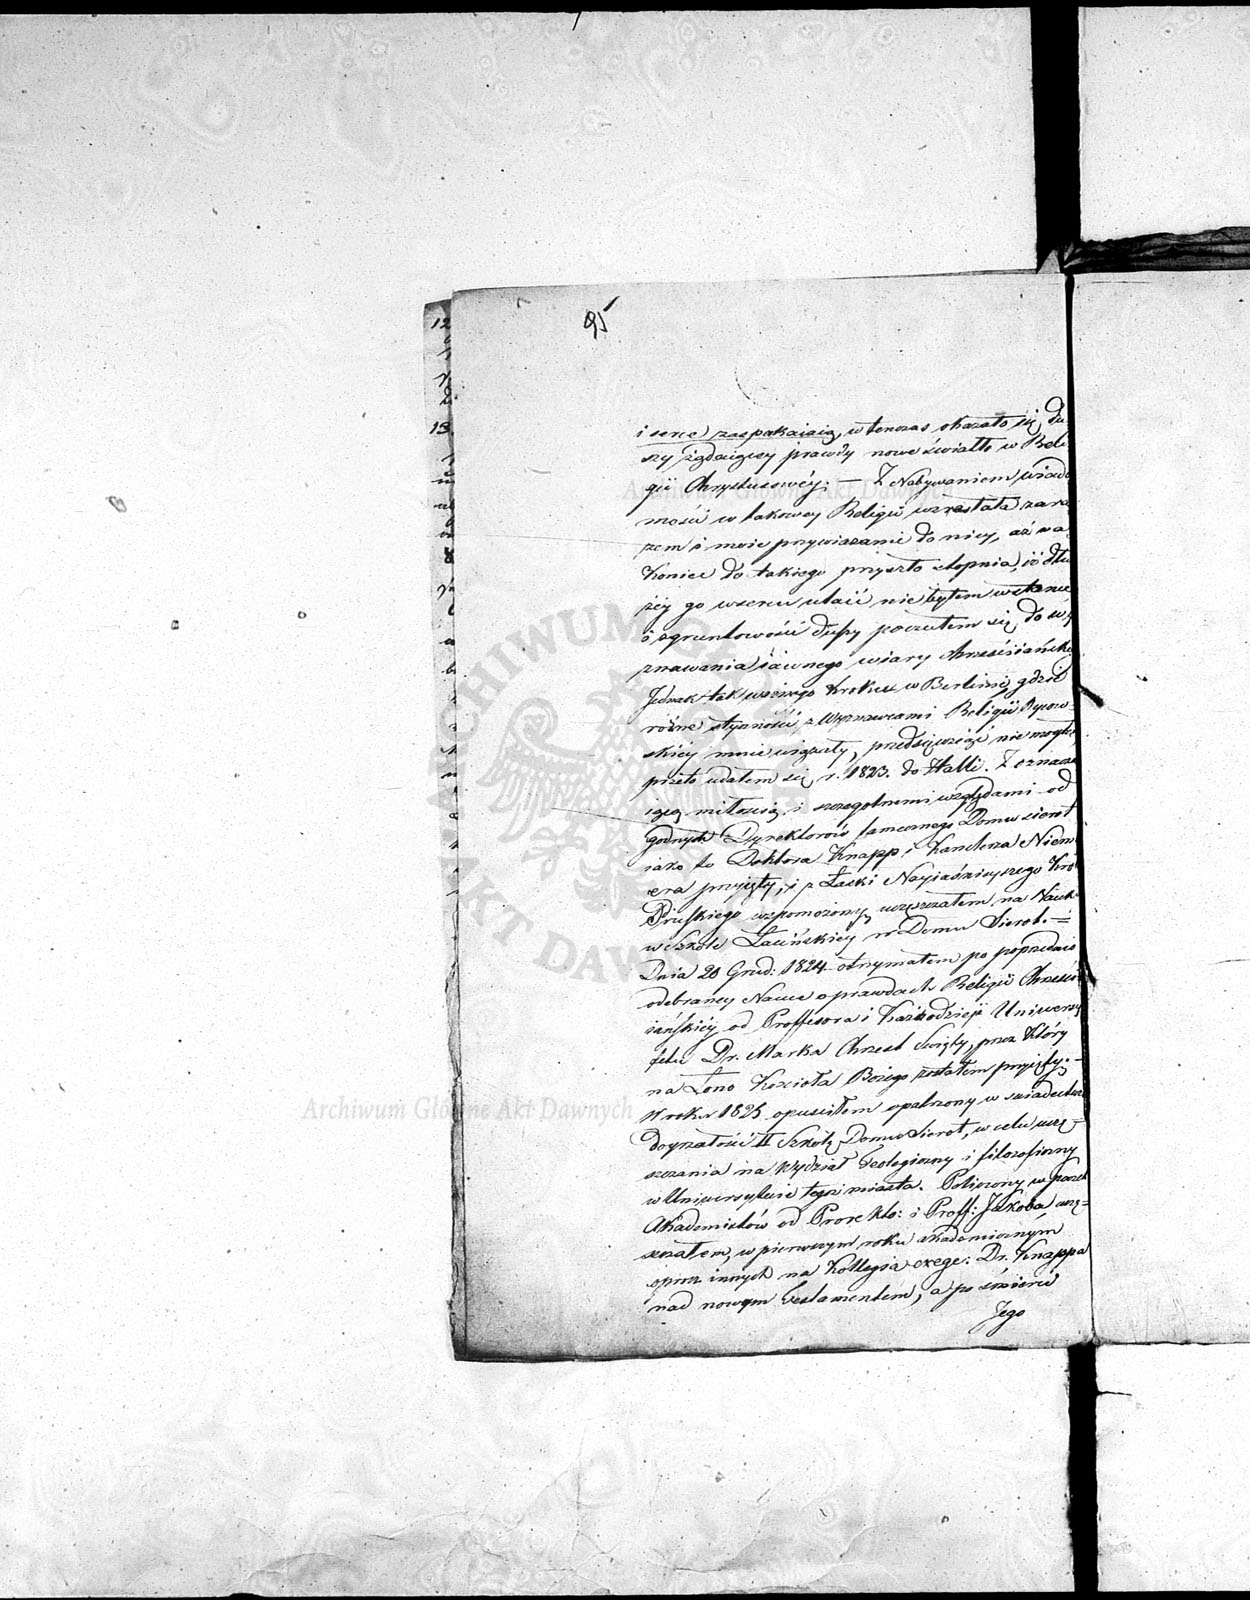 95
i serce zaspakaiaią, w tenczas okazało się du-
szy żądaiącey prawdy nowe światło w Reli-
gii Chrystusowéy. — Z Nabywaniem wiado
mości w takowey Religii wzrastała zara
zem i moie przywiązanie do niey, aż na
koniec do takiego przyszło stopnia, iż dłu
żéy go w sercu utaić nie byłem w stanie
i z gruntowości duszy poczułem się do wy
znawania iawnego wiary chrześciańskiéy
Jednak tak ważnego kroku w Berlinie, gdzie
różne styczności z Wyznawcami Religii Żydow-
skiéy mnie wiązały, przedsięwziąść nie mogłem
przeto udałem się r. 1823. do Halli. Z
miłością i szczegolnemi względami od
godnych Dyrektorów tamecznego Domu sierot
iako to Doktora Knapp i Kanclerza Niem
era przyięty, i z Łaski Nayiaśnieyszego Kró
Pruskiego wspomożony uczęszczałem na Nauk
w Szkole Łacińskiéy w Domu Sierot. =
Dnia 20 Grud: 1824 otrzymałem po poprzednio
odebraney Nauce o prawdach Religii Chrześci
iańskiéy od Proffesora i Kaźnodzieji Uniwersy
tetu Dr. Marka Chrzest Święty, przez który
na Łono Kościoła Bożego zostałem przyięty. -
W roku 1825 opuściłem opatrzony w świadectwo
doyrzałości II Szkołę Domu Sierot, w celu uczę-
szczania na Wydział Teologiczny i filozoficzny
w Uniwersytecie tegoż miasta. Policzony w poczet
Akademików od Prorekto: i Proff: Jakoba uczę-
szczałem, w pierwszym roku akademicznym
oprócz innych na Kollegia exege: Dr. Knappa
nad nowym Testamentem, a po śmierci
Jego
12
13
Archiwum Główne Akt Dawnych
Archiwum Główne Akt Dawnych